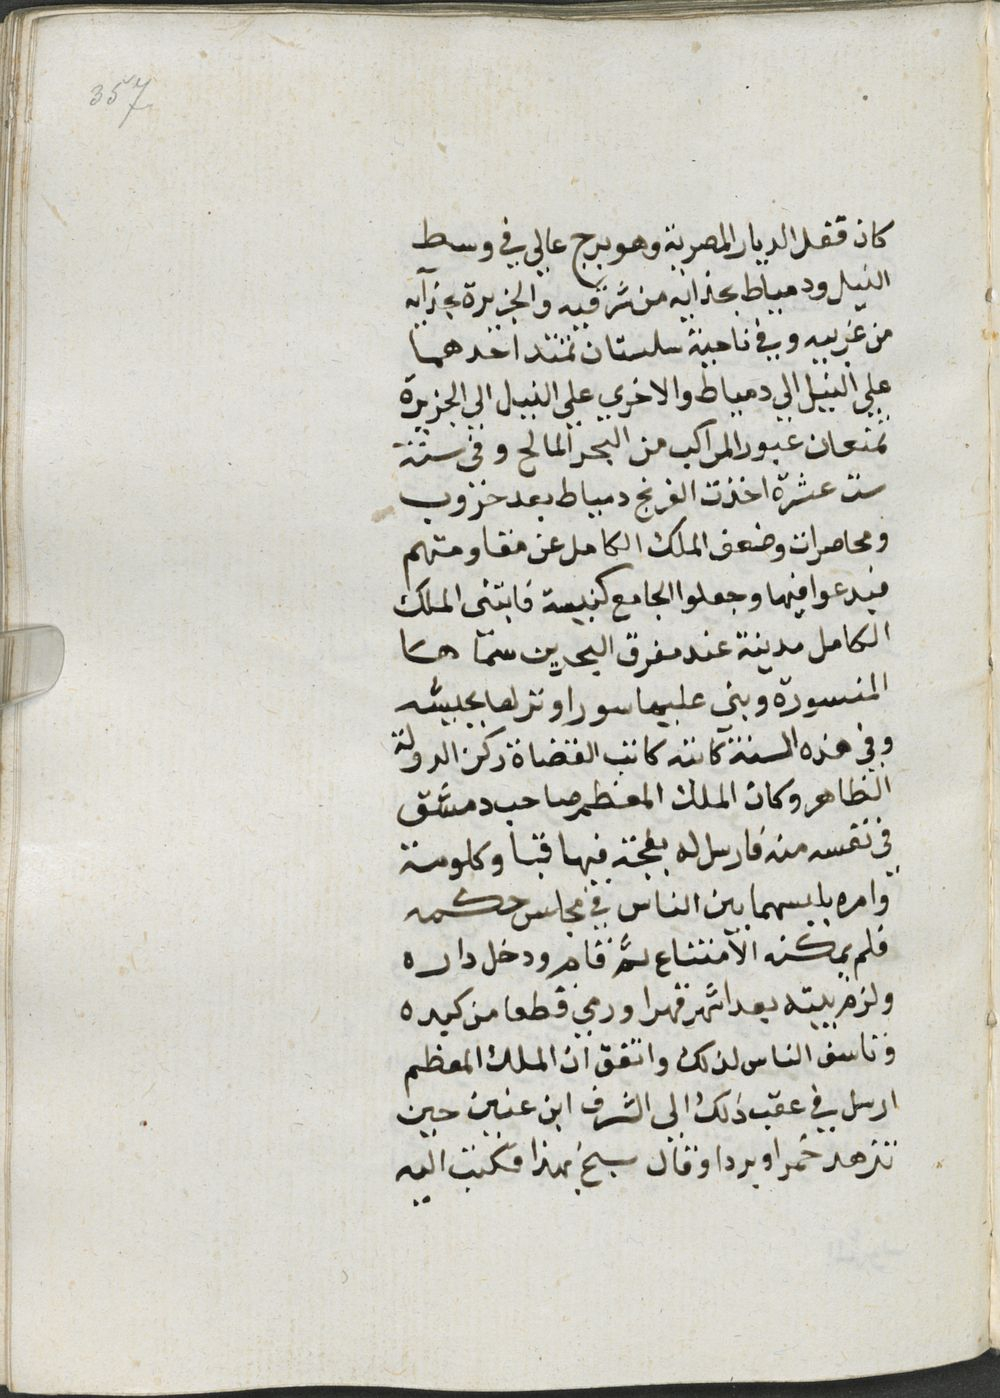 357
كان قفل الديار المصرية وهو برج عالي في وسط
النيل ودمياط بحذايه من شرقيه والجزيرة بحذآيه
من غربيه وفي ناحيته سلستان تمتد احدهما
علي النيل الي دمياط والاخري علي النيل الي الجزيرة
تمنعان عبور المراكب من البحر المالح وفي سنة
ست عشرة اخذت الفرنج دمياط بعد حروب
ومحاصرات وضعف الملك الكامل عن مقاومتهم
فبدعوا فيها وجعلوا الجامع كنيسة فابتنى الملك
الكامل مدينة عند مفرق البحرين سمّاها
المنسورة وبني عليها سورا ونزلها بجيشه
وفي هذه السنة كاتبه كاتب القضاة ركن الدولة
الظاهر وكان الملك المعظم صاحب دمشق
في نفسه منه فارسل له بقجة فيها قبا وكلوتة
وامره بلبسهما بين الناس في مجلس حكمه
فلم يمكنه الامتناع ثم قام ودخل داره
ولزم بيته بعد اشهر قهرا ورمي قطعا من كبده
وتاسف الناس لذلك واتفق ان الملك المعظم
ارسل في عقب ذلك الى الشرف ابن عنين حين
تزهد خمرا وبردا وقال سبح بهذا فكتب اليه